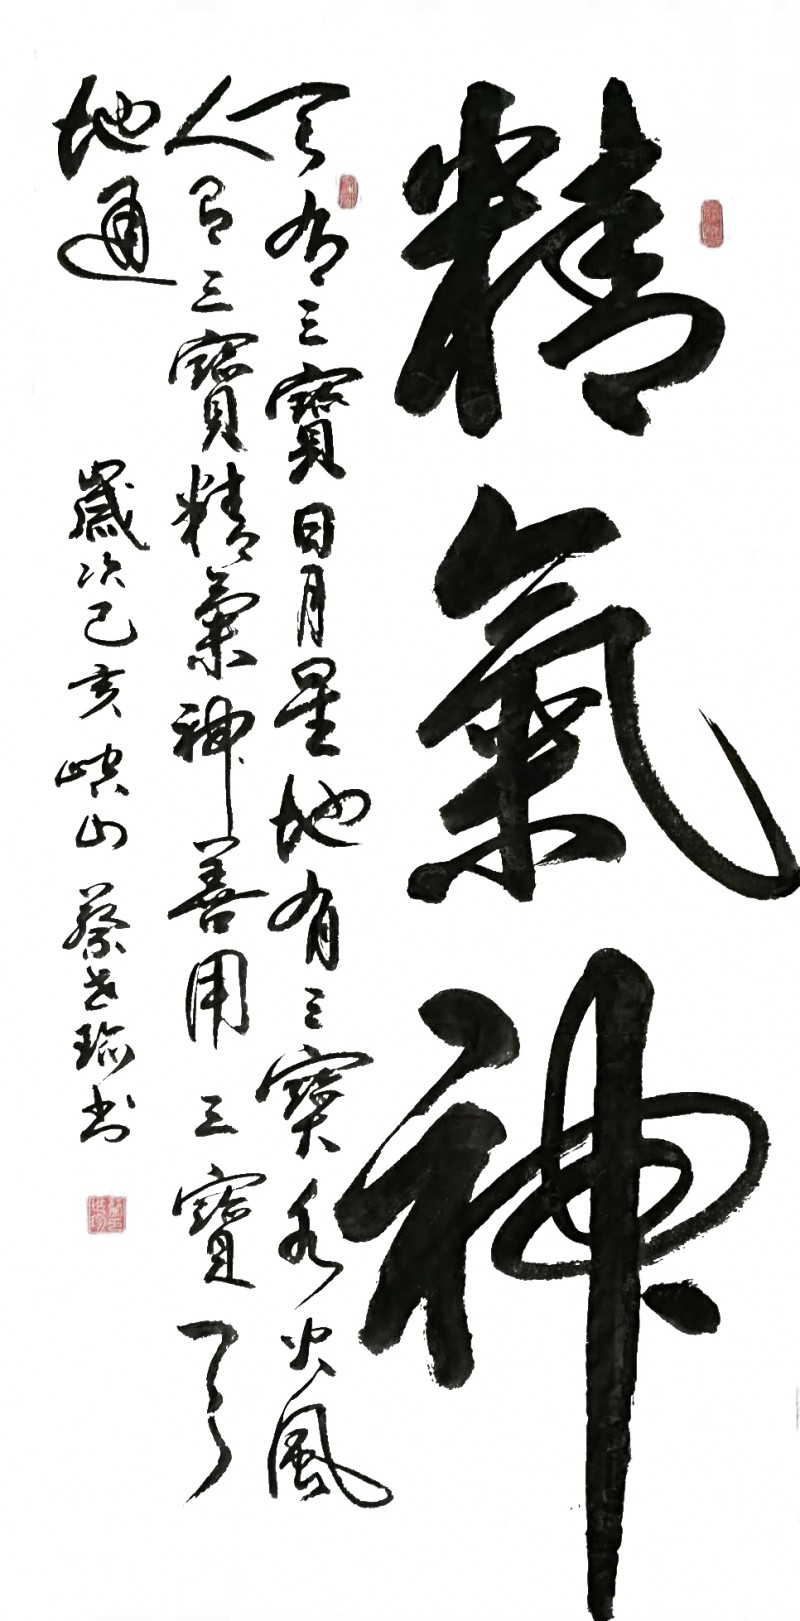 精氣神
天有三寶日月星地有三寶水火風
人有三寶精氣神善用三寶天
地通
歲次己亥 山蔡世珍书